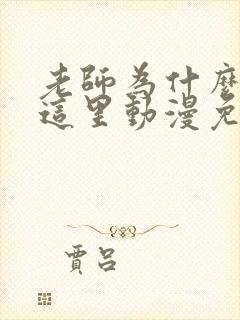 老師為什麼
這里動漫免
賈呂